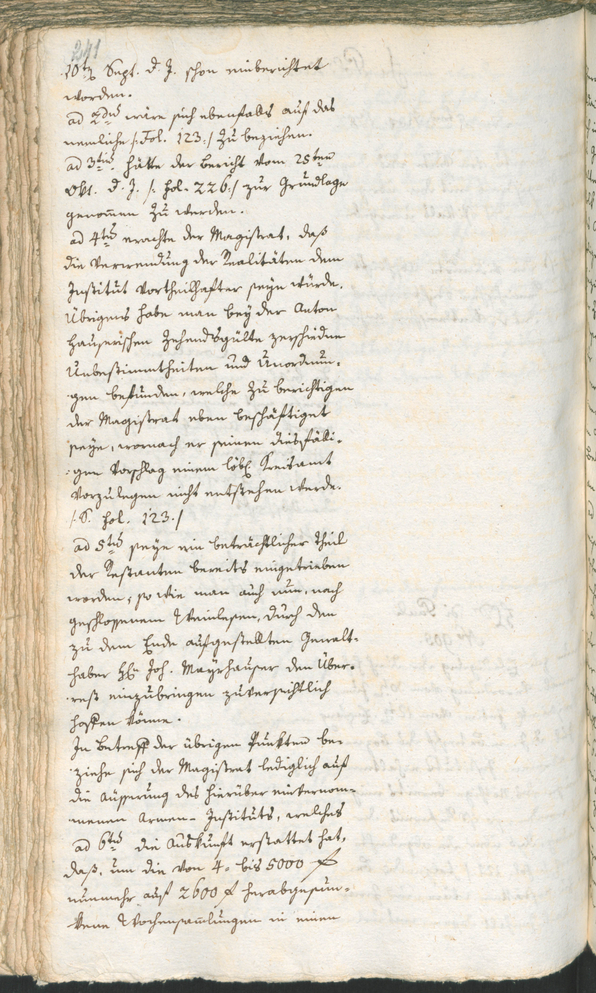 241
10ten Sept. d. J. schon einberichtet
worden.
ad 2dum wäre sich ebenfalls auf das
nemliche /: Fol. 123. :/ zu beziehen.
ad 3tium hätte der Bericht vom 28ten
Okt. d. J. /: Fol. 226 :/ zur Grundlage
genommen zu werden.
ad 4tum erachte der Magistrat, daß
die Verwendung der Realitäten dem
Institut vortheilhafter seyn würde.
Übrigens habe man bey der Anton
Hauserischen Zehendsgülte verschiedne
Unbestimmtheiten und Unordnun-
gen befunden, welche zu berichtigen
der Magistrat eben beschäftiget
seye, wornach er seinen diesfälli-
gen Vorschlag einem löbl. Kreisamt
vorzulegen nicht entstehen werde.
/: S. Fol. 123. :/
ad 5tum seye ein beträchtlicher Theil
der Restanten bereits eingetrieben
worden, so wie man auch nun, nach
geschlossenem Weinlesen, durch den
zu dem Ende aufgestellten Gewalt-
haber H. Joh. Mayrhauser den Über-
rest einzubringen zuversichtlich
hoffen könne.
In Betreff der übrigen Punkten be-
ziehe sich der Magistrat lediglich auf
die Äusserung des hierüber einvernom-
menen Armen-Instituts, welches
ad 6tum die Auskunft erstattet hat,
daß, um die von 4- bis 5000 f
nunmehr auf 2600 f herabgesun-
kene Wochensammlungen in einen